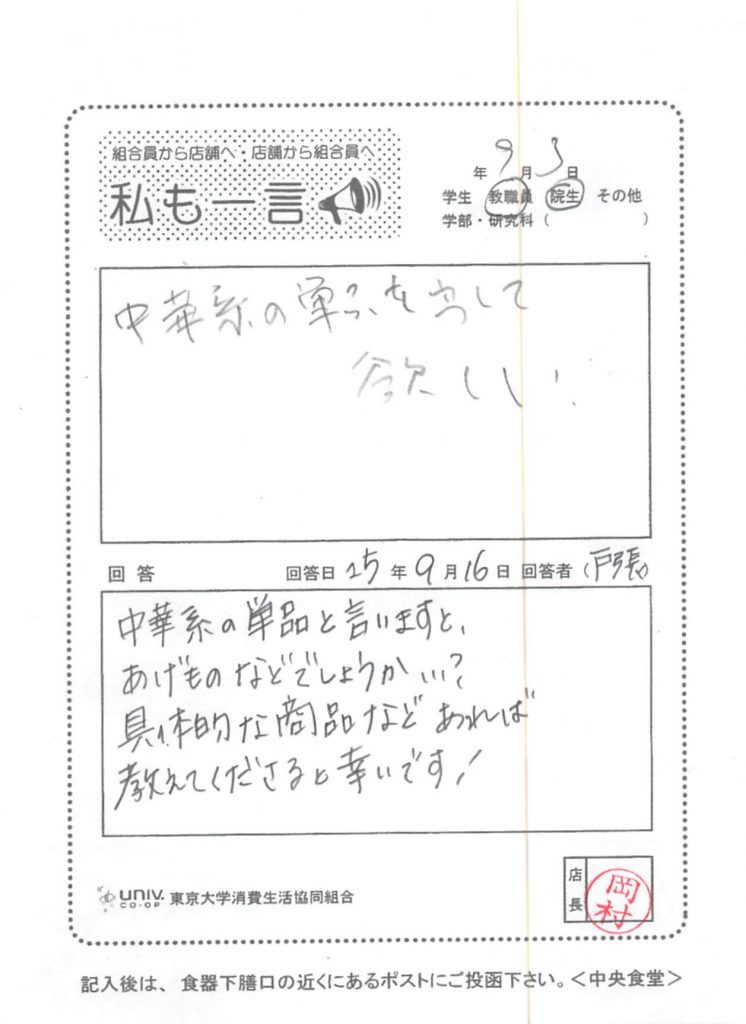 組合員から店舗へ・店舗から組合員へ
私も一言
年 9 月 3 日
学生 教職員 院生 その他
学部・研究科( )
中華系の単品を出して
欲しい.
回答 回答日 25 年 9 月 16 日 回答者(戸張)
中華系の単品と言いますと、
あげものなどでしょうか…?
具体的な商品などあれば
教えてくださると幸いです!
店長
岡村
univ. CO-OP 東京大学消費生活協同組合
記入後は、食器下膳口の近くにあるポストにご投函下さい。<中央食堂>